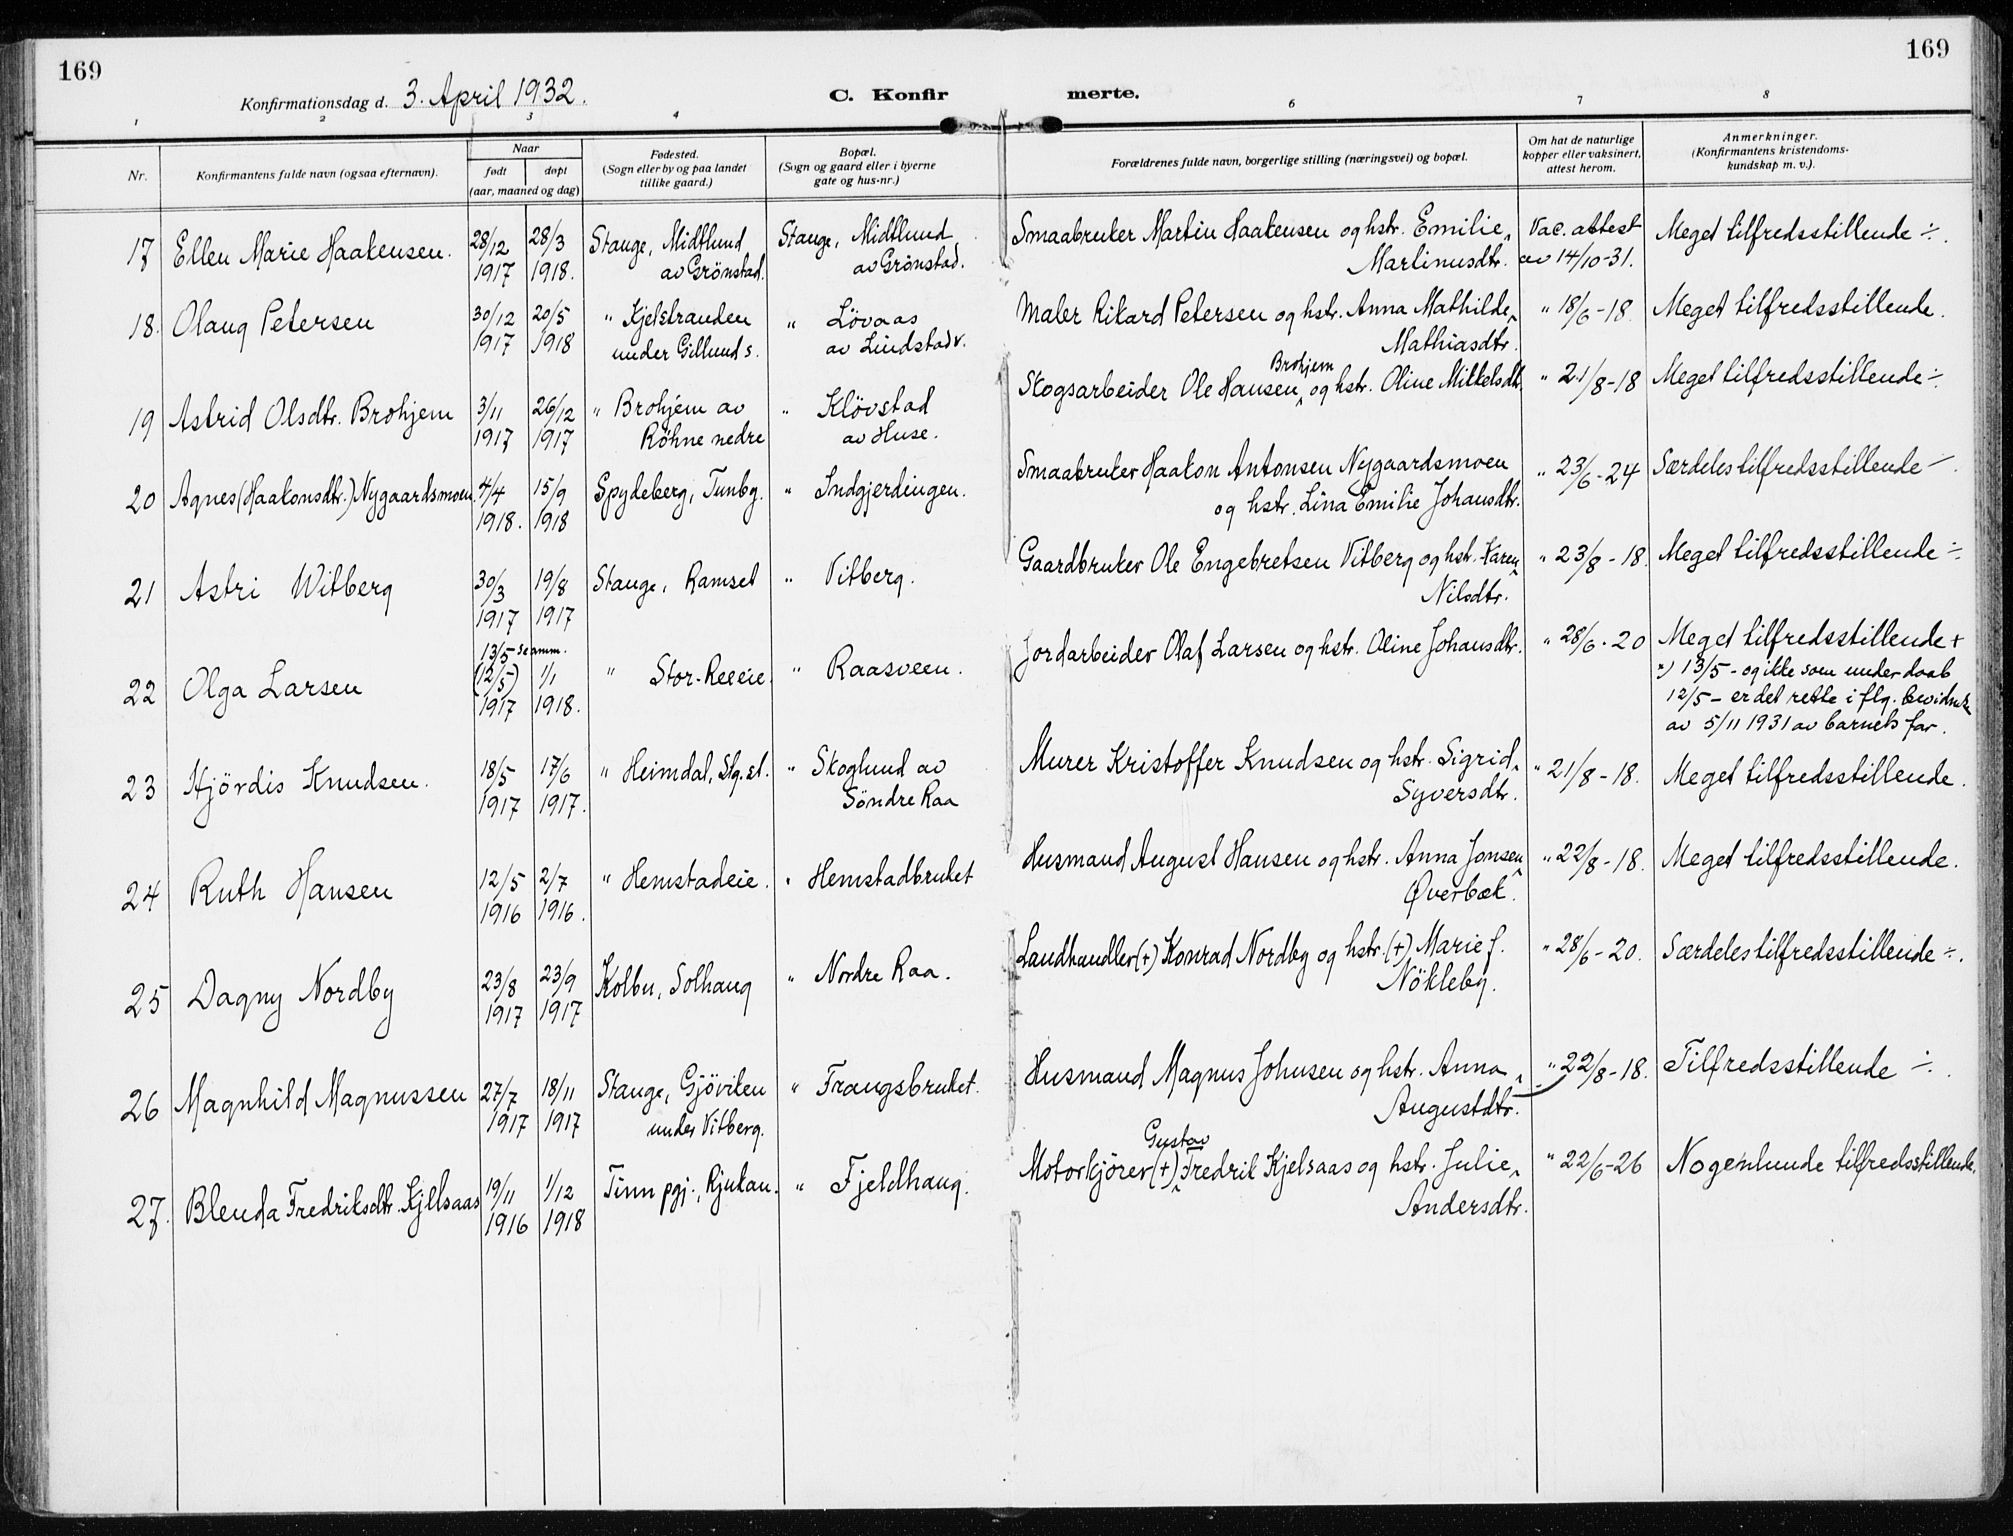 169
169
Konfirmationsdag d. 3. April 1932.
C. Konfir
merte.
1 2 3 4 6 7 8
Nr.
Konfirmantens fulde navn (ogsaa efternavn).
Naar
født
døpt
(aar, maaned og dag)
Fødested.
(Sogn eller by og paa landet
tillike gaard.)
Bopæl.
(Sogn og gaard eller i byerne
gate og hus-nr.)
Forældrenes fulde navn, borgerlige stilling (næringsvei) og bopæl.
Om hat de naturlige
kopper eller vaksinert,
attest herom.
Anmerkninger.
(Konfirmantens kristendoms-
kundskap m. v.).
17 Ellen Marie Haakensen. 28/12 28/3 Stange, Midtlund Stange, Midtlund Smaabruker Martin Haakensen og hstr. Emilie Vac. attest Meget tilfredsstillende ÷.
1917 1918. av Grönstad. av Grönstad. Martinusdtr. av 14/10-31.
18. Olaug Petersen 30/12 20/5 " Kjelstranden " Lövaas Maler Rikard Petersen og hstr. Anna Mathilde " 18/6-18 Meget tilfredsstillende.
1917 1918 under Gillund s. av Lindstad v. Mathiasdtr.
Brohjem
19 Astrid Olsdtr. Brohjem 3/11 26/12 " Brohjem av " Klövstad Skogsarbeider Ole Hansen og hstr. Oline Mikkelsdtr. " 21/8-18 Meget tilfredsstillende ÷.
1917 1917 Røhne nedre av Huse.
20 Agnes (Haakonsdtr.) Nygaardsmoen. 4/4 15/9 Spydeberg, Tunby. " Indgjerdingen. Smaabruker Haakon Antonsen Nygaardsmoen " 23/6-24 Særdeles tilfredsstillende ÷.
1918. 1918 og hstr. Lina Emilie Johansdtr.
21 Astri Witberg 30/3 19/8 Stange, Ramset " Vitberg. Gaardbruker Ole Engebretsen Vitberg og hstr. Karen " 23/8-18. Meget tilfredsstillende ÷.
1917 1917 Nilsdtr.
13/5 se anm.
22 Olga Larsen (12/5) 1/1 " Stor-Reeeie. " Raasveen. Jordarbeider Olaf Larsen og hstr. Oline Johansdtr. " 28/6-20 Meget tilfredsstillende +
1917 1918.
×) 13/5 - og ikke som under daab
12/5 - er det rette i flg.
av 5/11 1931 av barnets far.
23 Hjördis Knudsen. 18/5 17/6 " Heimdal, Stg. st. " Skoglund av Murer Kristoffer Knudsen og hstr. Sigrid " 21/8-18. Meget tilfredsstillende.
1917 1917. Söndre Raa Syversdtr.
24 Ruth Hansen 12/5 2/7 " Hemstadeie. " Hemstadbruket Husmand August Hansen og hstr. Anna Jonsen " 22/8-18. Meget tilfredsstillende.
1916 1916. Øverbæk.
25 Dagny Nordby 23/8 23/9 Kolbu, Solhaug " Nordre Raa. Landhandler (+) Konrad Nordby og hstr. (+) Marie f. " 28/6-20. Særdeles tilfredsstillende ÷.
1917 1917 Nökleby.
26 Magnhild Magnussen 27/7 18/11 Stange, Gjöviken " Frangsbruket. Husmand Magnus Johnsen og hstr. Anna " 22/8-18. Tilfredsstillende ÷.
1917 1917 under Vitberg. Augustdtr.
Gustav
27. Blenda Fredriksdtr. Kjelsaas 19/11 1/12 Tinn pgj., Rjukan. " Fjeldhaug. Motorkjörer (+) Fredrik Kjelsaas og hstr. Julie " 22/6-26 Nogenlunde tilfredsstillende.
1916 1918 Andersdtr.